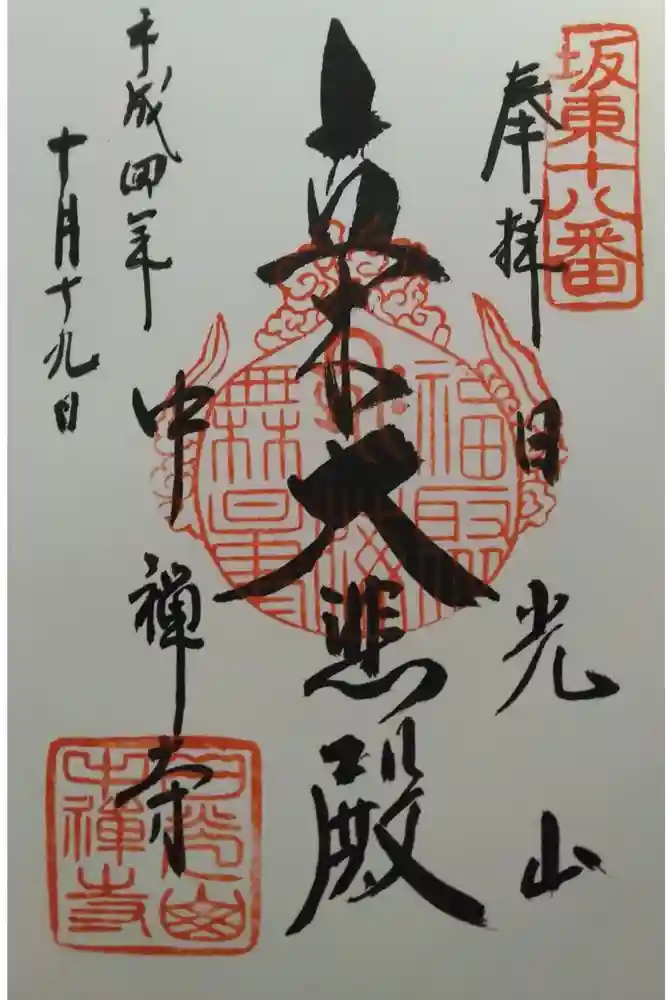 坂東十八番
奉拝
日光山
立木大悲殿
中禅寺
平成四年
十月十九日
福聚
海
無量
日光山
中禪寺